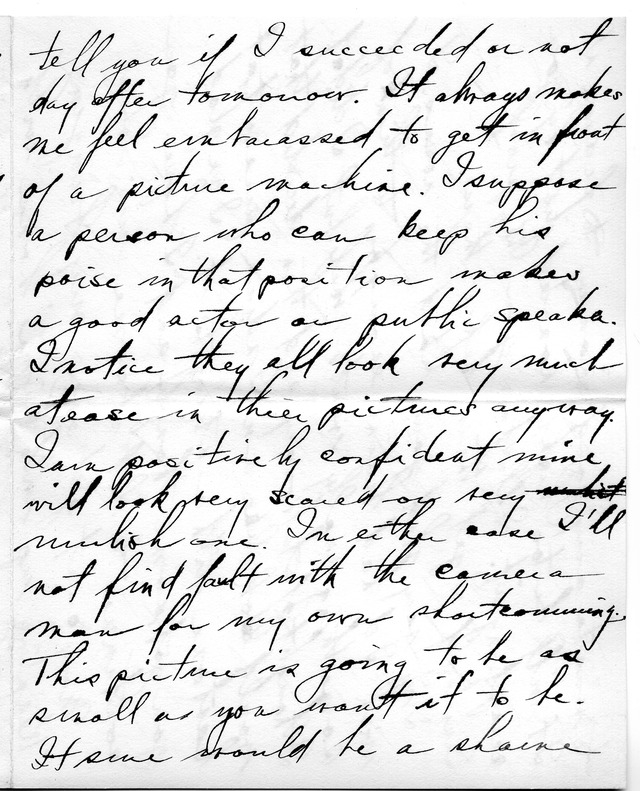 tell you if I succeeded or not
day after tomorrow. It always makes
me feel embarassed to get in front
of a picture machine. I suppose
a person who can keep his
poise in that position makes
a good actor or public speaker.
I notice they all look very much
at ease in their pictures anyway.
I am positively confident mine
will look very scared or very
mulish one. In either case I'll
not find fault with the camera
man for my own shortcomming.
This picture is going to be as
small as you want it to be.
It sure would be a shame